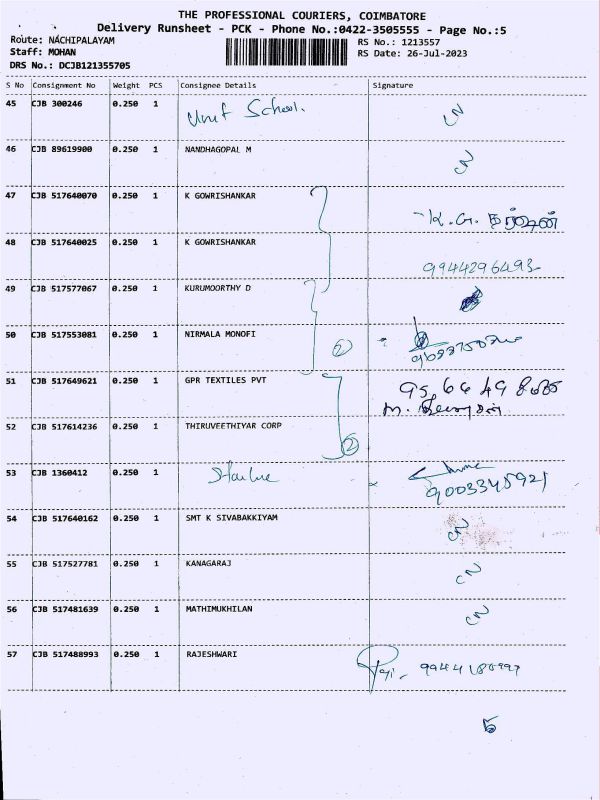 THE PROFESSIONAL COURIERS, COIMBATORE
Delivery Runsheet - PCK - Phone No.:0422-3505555 - Page No.:5
Route: NACHIPALAYAM
RS No.: 1213557
Staff: MOHAN
RS Date: 26-Jul-2023
DRS No.: DCJB121355705
S No Consignment No Weight PCS Consignee Details Signature
45 CJB 300246 0.250 1 School.
46 CJB 89619900 0.250 1 NANDHAGOPAL M
47 CJB 517640070 0.250 1 K GOWRISHANKAR
K.G.
48 CJB 517640025 0.250 1 K GOWRISHANKAR
9944296493
49 CJB 517577067 0.250 1 KURUMOORTHY D
50 CJB 517553081 0.250 1 NIRMALA MONOFI
2
51 CJB 517649621 0.250 1 GPR TEXTILES PVT
52 CJB 517614236 0.250 1 THIRUVEETHIYAR CORP
2
53 CJB 1360412 0.250 1
9003345921
54 CJB 517640162 0.250 1 SMT K SIVABAKKIYAM
55 CJB 517527781 0.250 1 KANAGARAJ
56 CJB 517481639 0.250 1 MATHIMUKHILAN
57 CJB 517488993 0.250 1 RAJESHWARI